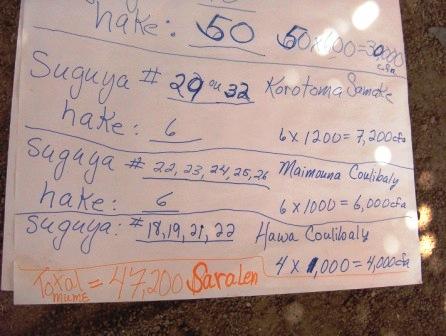 hake: 50 50x600=30,000 cfa
Suguya # 29 ou 32 Korotoma Samake
hake: 6 6 x 1200 = 7,200 cfa
Suguya # 22, 23, 24, 25, 26 Maimouna Coulibaly
hake: 6 6 x 1000 = 6,000 cfa
Suguya: # 18, 19, 21, 22 Hawa Coulibaly
4 x 1,000 = 4,000 cfa
Total mumɛ = 47,200 Saralen